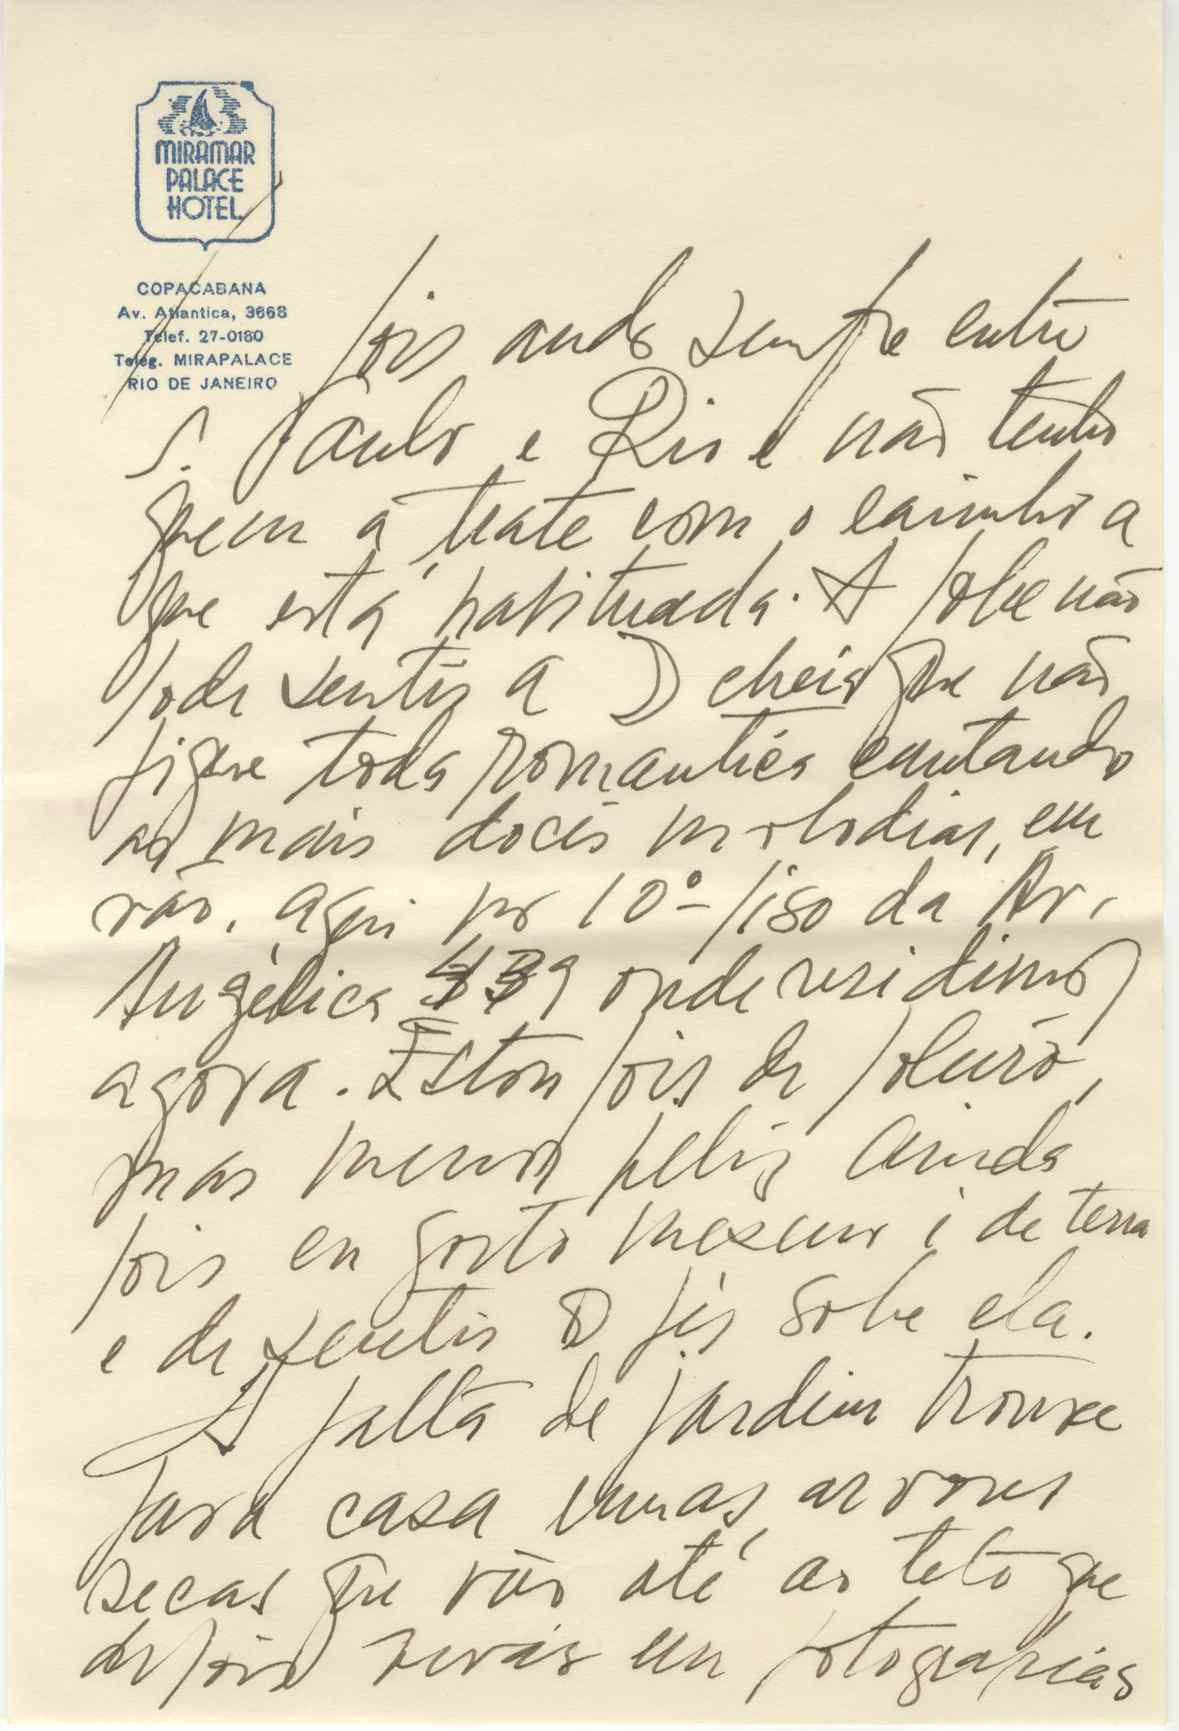 MIRAMAR
PALACE
HOTEL
COPACABANA
Av. Atlantica, 3668
Telef. 27-0180
Teleg. MIRAPALACE
RIO DE JANEIRO
pois ando sempre entre
S. Paulo e Rio e não tenho
quem a trate com o carinho a
que está habituada. A pobre não
pode sentir a D cheia que não
fique toda romantica cantando
as mais doces melodias, em
vão, aqui no 10º piso da Av.
Angélica 439 onde residimos
agora. Estou pois de poleiro,
mas menos feliz ainda
pois eu gosto mesmo é de terra
e de sentir os pés sobre ela.
A falta de jardim trouxe
para casa umas arvores
secas que vão até ao teto que
depois verás em fotografias